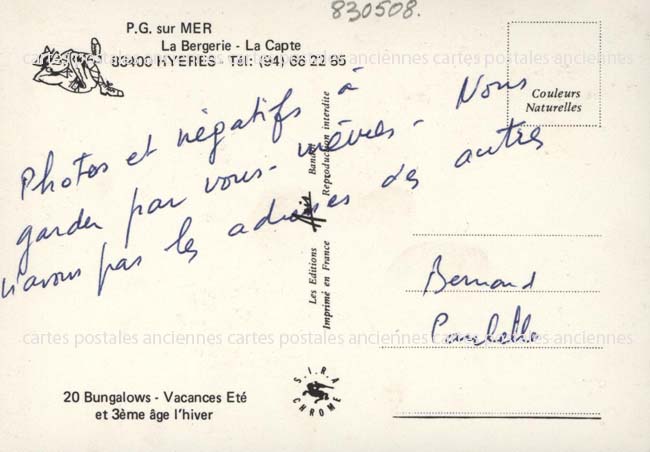 830508.
P.G. sur MER
La Bergerie - La Capte
83400 HYERES - Tél: (94) 66 22 65
cartes postales anciennes cartes postales anciennes cartes postales anciennes
Couleurs
Naturelles
Photos et négatifs à
garder par vous-mêmes - Nous
n'avons pas les adresses des autres
Les Editions Aris Bandol
Imprimé en France Reproduction interdite
Bernard
Paulette
cartes postales anciennes cartes postales anciennes cartes postales anciennes
S.I.R.A
CHROME
20 Bungalows - Vacances Eté
et 3ème âge l'hiver